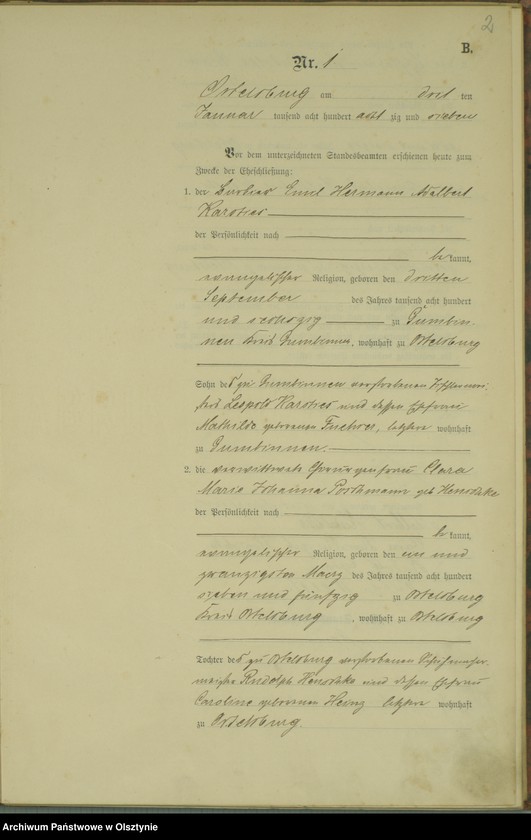 2
B.
Nr. 1
Ortelsburg am drei ten
Januar tausend acht hundert acht zig und sieben
Vor dem unterzeichneten Standesbeamten erschienen heute zum
Zwecke der Eheschließung:
1. der Emil Hermann Adalbert
der Persönlichkeit nach
be kannt,
evangelischer Religion, geboren den dritten
September des Jahres tausend acht hundert
und sechszig zu Gumbin
nen Kreis Gumbinnen, wohnhaft zu Ortelsburg
Sohn des zu Gumbinnen verstorbenen
Leopold und dessen Ehefrau
Mathilde geborenen letztere wohnhaft
zu Gumbinnen.
2. die verwittwete Clara
Maria Johanna Porthmann geb
der Persönlichkeit nach
be kannt,
evangelischer Religion, geboren den ein und
zwanzigsten Maerz des Jahres tausend acht hundert
sieben und fünfzig zu Ortelsburg
Kreis Ortelsburg, wohnhaft zu Ortelsburg
Tochter des zu Ortelsburg verstorbenen Schuhmacher
meister Rudolph und dessen Ehefrau
Caroline geborenen Heinz letztere wohnhaft
zu Ortelsburg.
Archiwum Państwowe w Olsztynie